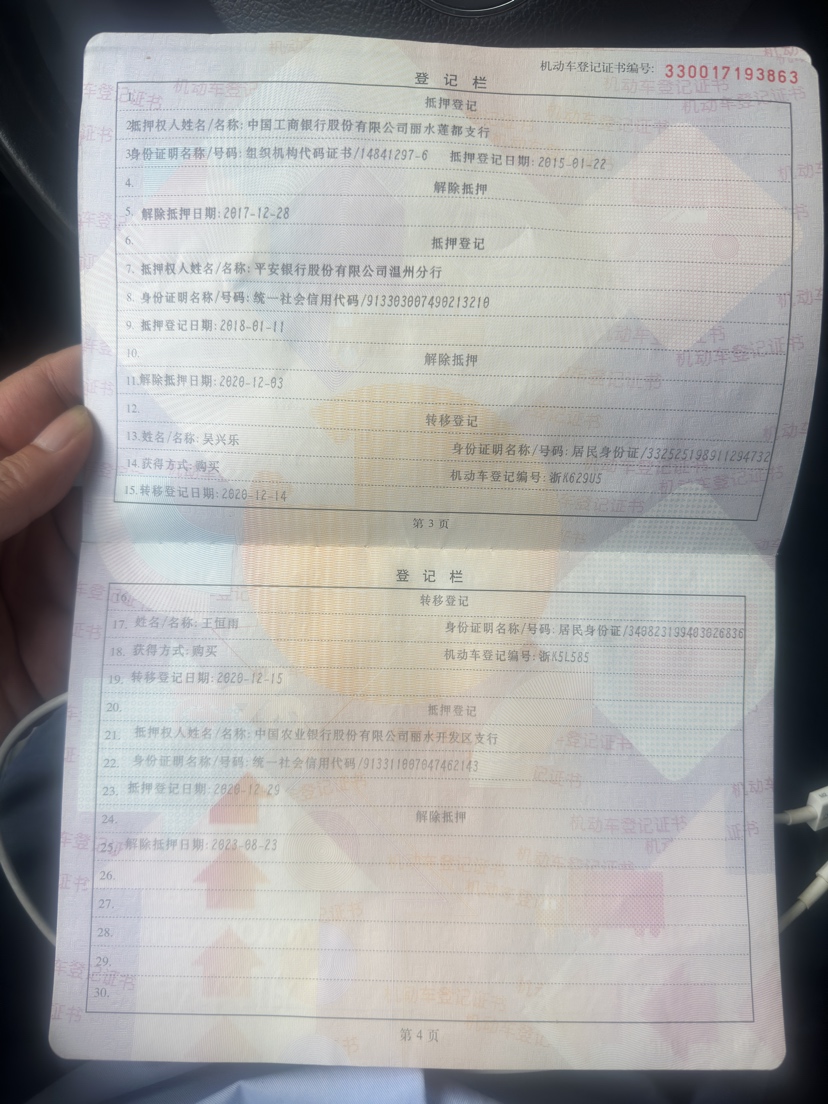 机动车登记证书编号: 330017193863
登记栏
1. 抵押登记
2. 抵押权人姓名/名称: 中国工商银行股份有限公司丽水莲都支行
3. 身份证明名称/号码: 组织机构代码证书/14841297-6 抵押登记日期: 2015-01-22
4. 解除抵押
5. 解除抵押日期: 2017-12-28
6. 抵押登记
7. 抵押权人姓名/名称: 平安银行股份有限公司温州分行
8. 身份证明名称/号码: 统一社会信用代码/913303007490213210
9. 抵押登记日期: 2018-01-11
10. 解除抵押
11. 解除抵押日期: 2020-12-03
12. 转移登记
13. 姓名/名称: 吴兴乐 身份证明名称/号码: 居民身份证/332525198911294732
14. 获得方式: 购买 机动车登记编号: 浙K629U5
15. 转移登记日期: 2020-12-14
第 3 页
登记栏
16. 转移登记
17. 姓名/名称: 王恒雨 身份证明名称/号码: 居民身份证/340823199403026836
18. 获得方式: 购买 机动车登记编号: 浙K5L585
19. 转移登记日期: 2020-12-15
20. 抵押登记
21. 抵押权人姓名/名称: 中国农业银行股份有限公司丽水开发区支行
22. 身份证明名称/号码: 统一社会信用代码/913311007047462143
23. 抵押登记日期: 2020-12-29
24. 解除抵押
25. 解除抵押日期: 2023-08-23
26.
27.
28.
29.
30.
第 4 页